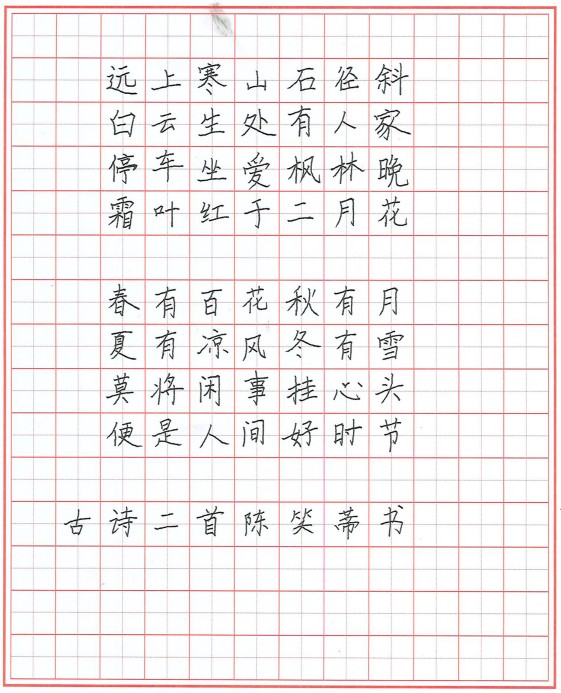 远上寒山石径斜
白云生处有人家
停车坐爱枫林晚
霜叶红于二月花
春有百花秋有月
夏有凉风冬有雪
莫将闲事挂心头
便是人间好时节
古诗二首陈笑蒂书